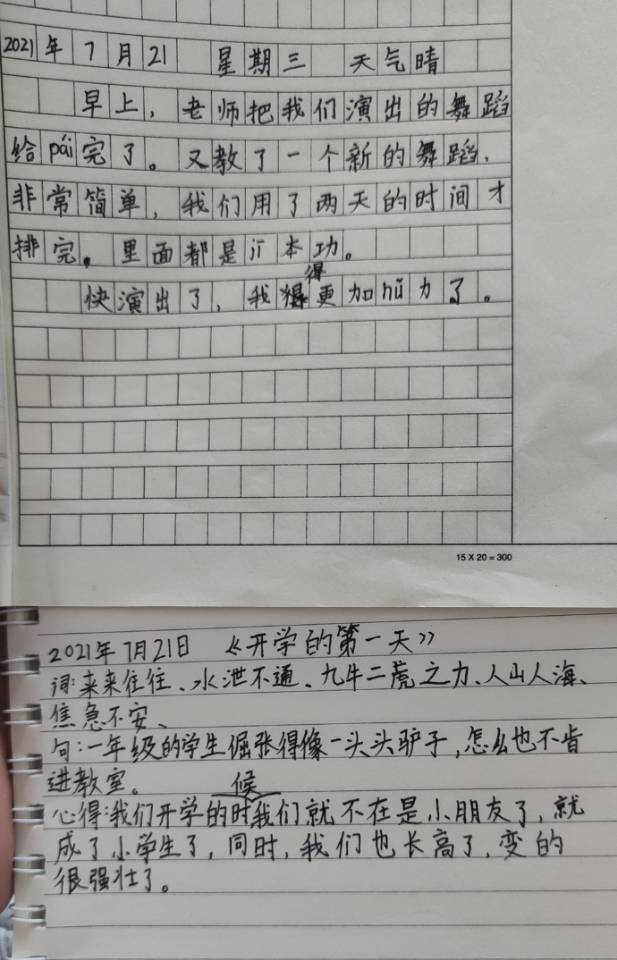 2021年7月21 星期三 天气晴
早上，老师把我们演出的舞蹈
给pái完了。又教了一个新的舞蹈，
非常简单，我们用了两天的时间才
排完。里面都是jī本功。
得
快演出了，我更加nǔ力了。
15 X 20 = 300
2021年7月21日 《开学的第一天》
词：来来往往、水泄不通、九牛二虎之力、人山人海、
焦急不安、
句：一年级的学生倔张得像一头头驴子，怎么也不肯
进教室。
候
心得：我们开学的时我们就不在是小朋友了，就
成了小学生了，同时，我们也长高了，变的
很强壮了。